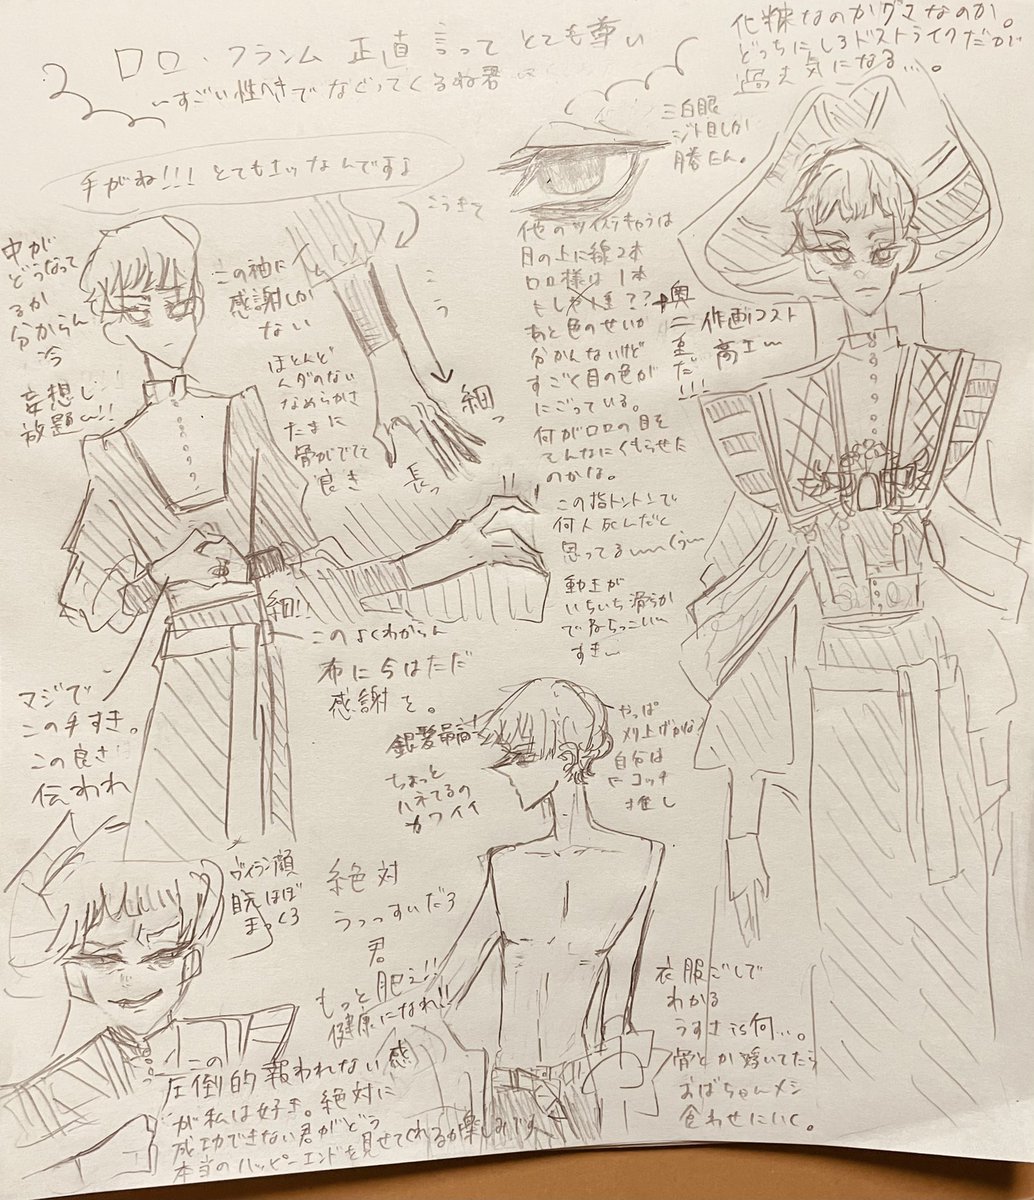 ロロ・フランム 正直言って とても尊い
〜すごい性へきで なぐってくるね君
化粧なのかクマなのか。
どっちにしろドストライクだが
過去気になる…。
手がね!!! とてもエッなんですよ
三白眼
ジト目しか
勝たん。
中が
どうなって
るか
分からん
冷
妄想し
放題〜!!
この袖に
感謝しか
ない
ほとんど
ムダのない
なめらかさ
たまに
骨がでてて
良き
こう
細っ
長っ
他のツイステキャラは
目の上に線2本
ロロ様は1本
あと色のせいか
分かんないけど
すごく目の色が
にごっている。
何がロロの目を
そんなにくもらせた
のかな。
奥二重だ!!!
作画コスト
高エ〜
この指トントンで
何人死んだと
思ってる
動キが
いちいち滑らか
すき〜
細!!
このよくわからん
布に今はただ
感謝を。
マジで
この手すき。
この良さ
伝われ
銀髪最高!
ちょっと
ハネてるの
カワイイ
やっぱ
刈り上げかな?
自分は
コッチ
推し
ヴィラン顔
目元ほぼ
まっくろ
絶対
うっっすいだろ
君
もっと肥え!!
健康になれ!!
衣服ごしで
わかる
うすさis何…。
骨とか浮いてたら
おばちゃんメシ
食わせにいく。
この
圧倒的報われない感
が私は好き。絶対に
成功できない君がどう
本当のハッピーエンドを見せてくれるか楽しみです